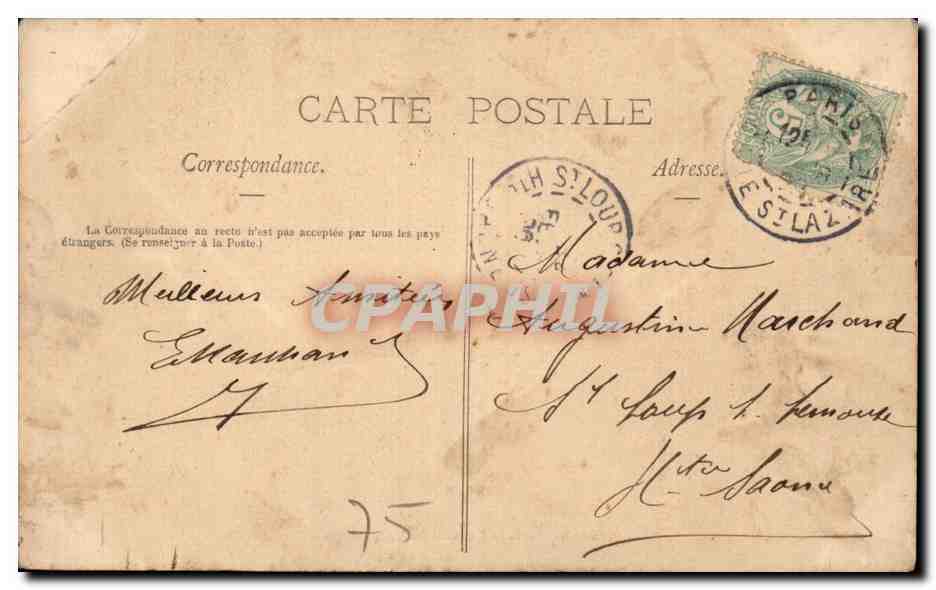 CARTE POSTALE
Correspondance.
Adresse.
La Correspondance au recto n'est pas acceptée par tous les pays
étrangers. (Se renseigner à la Poste.)
PARIS
ST LAZARE
ST LOUP
Meilleures Amitiés
EMarchand
Madame
Augustine Marchand
St Loup s. Semouse
Hte Saone
75
CPAPHIL